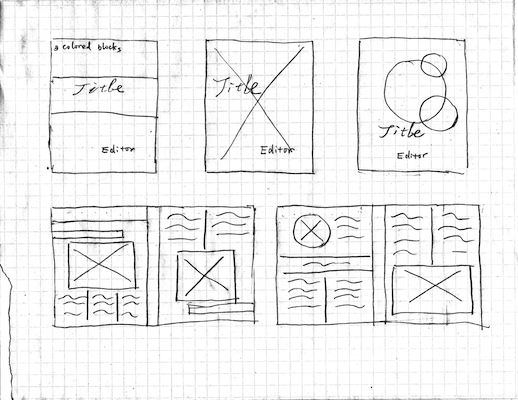 3 colored blocks
Title
Editor
Title
Editor
Title
Editor